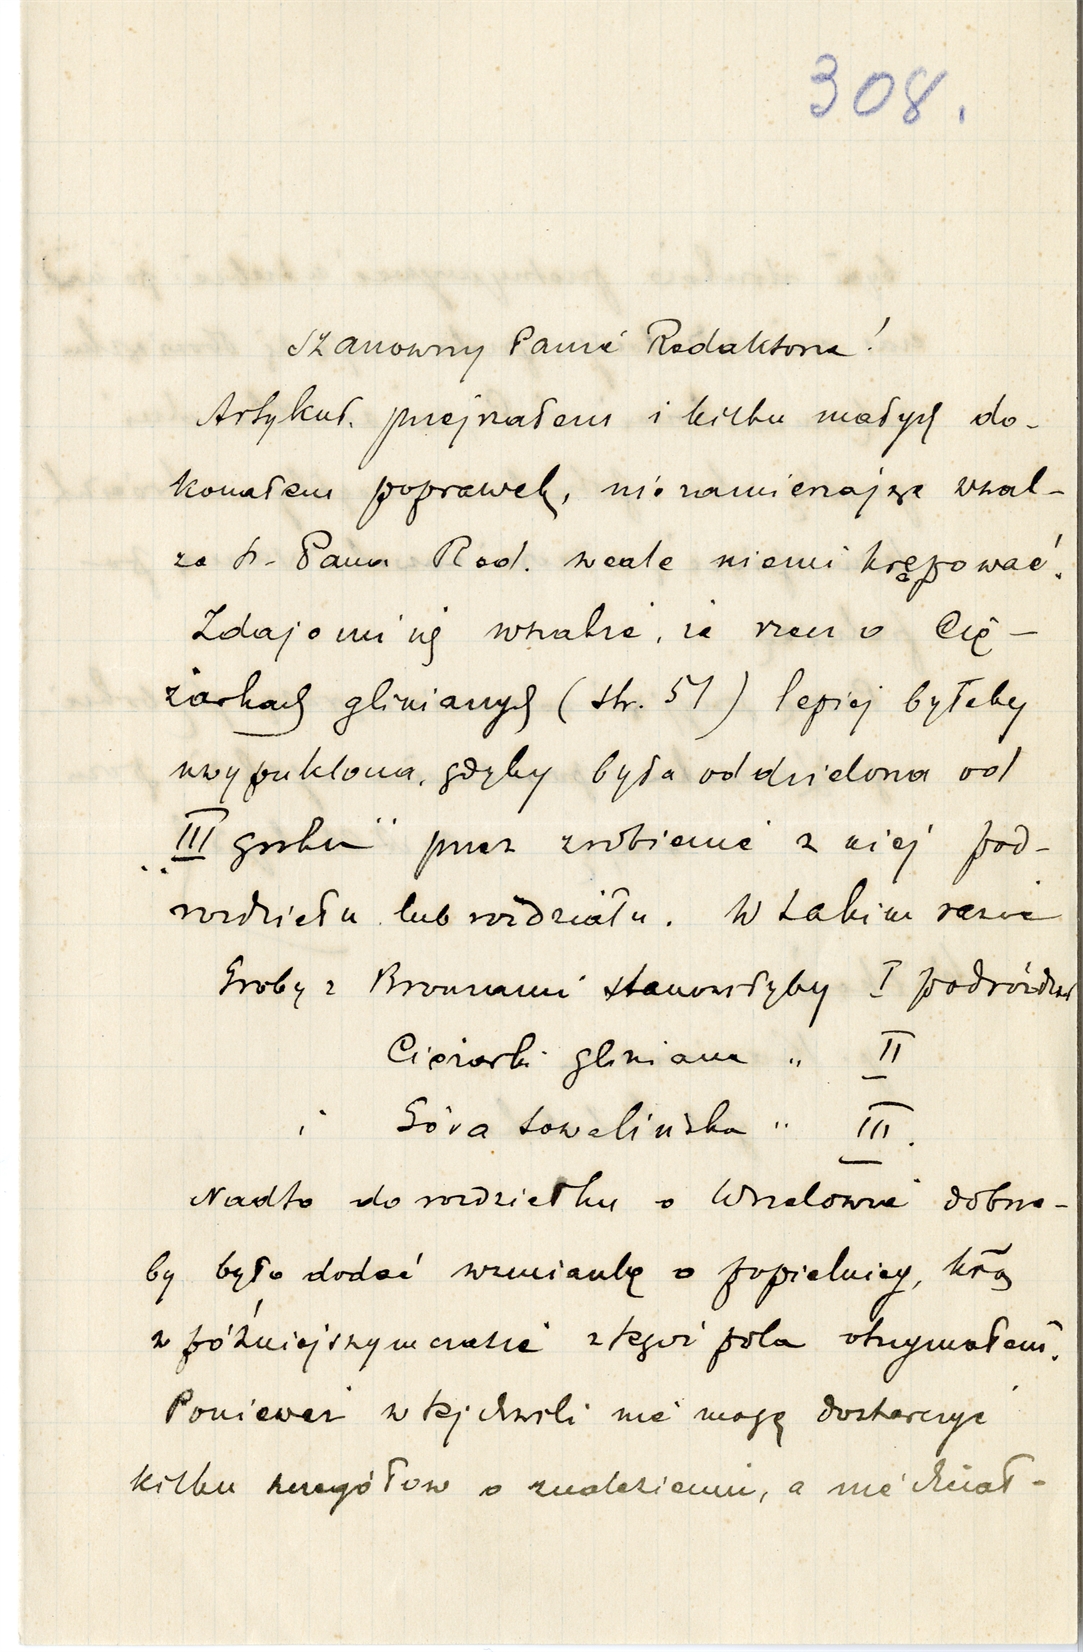 308.
Szanowny Panie Redaktorze!
Artykuł przejrzałem i kilku małych do-
konałem poprawek, nie zamierzając wszak-
że Sz. Pana Red. wcale niemi krępować.
Zdaje mi się wszakże, że rzecz o Cię-
żarkach glinianych (str. 51) lepiej byłaby
uwypuklona, gdyby była oddzielona od
„III grobu" przez zrobienie z niej pod-
rozdziału lub rozdziału. W takim razie
Groby z Bronzami stanowiłyby I podrózdz
Ciężarki gliniane " II
i Góra " III.
Nadto do rozdziału o dobrze-
by było dodać wzmiankę o popielnicy, którą
w późniejszym czasie z tegoż pola otrzymałem.
Ponieważ w tej chwili nie mogę dostarczyć
kilku szczegółów o znalezieniu, a nie chciał-